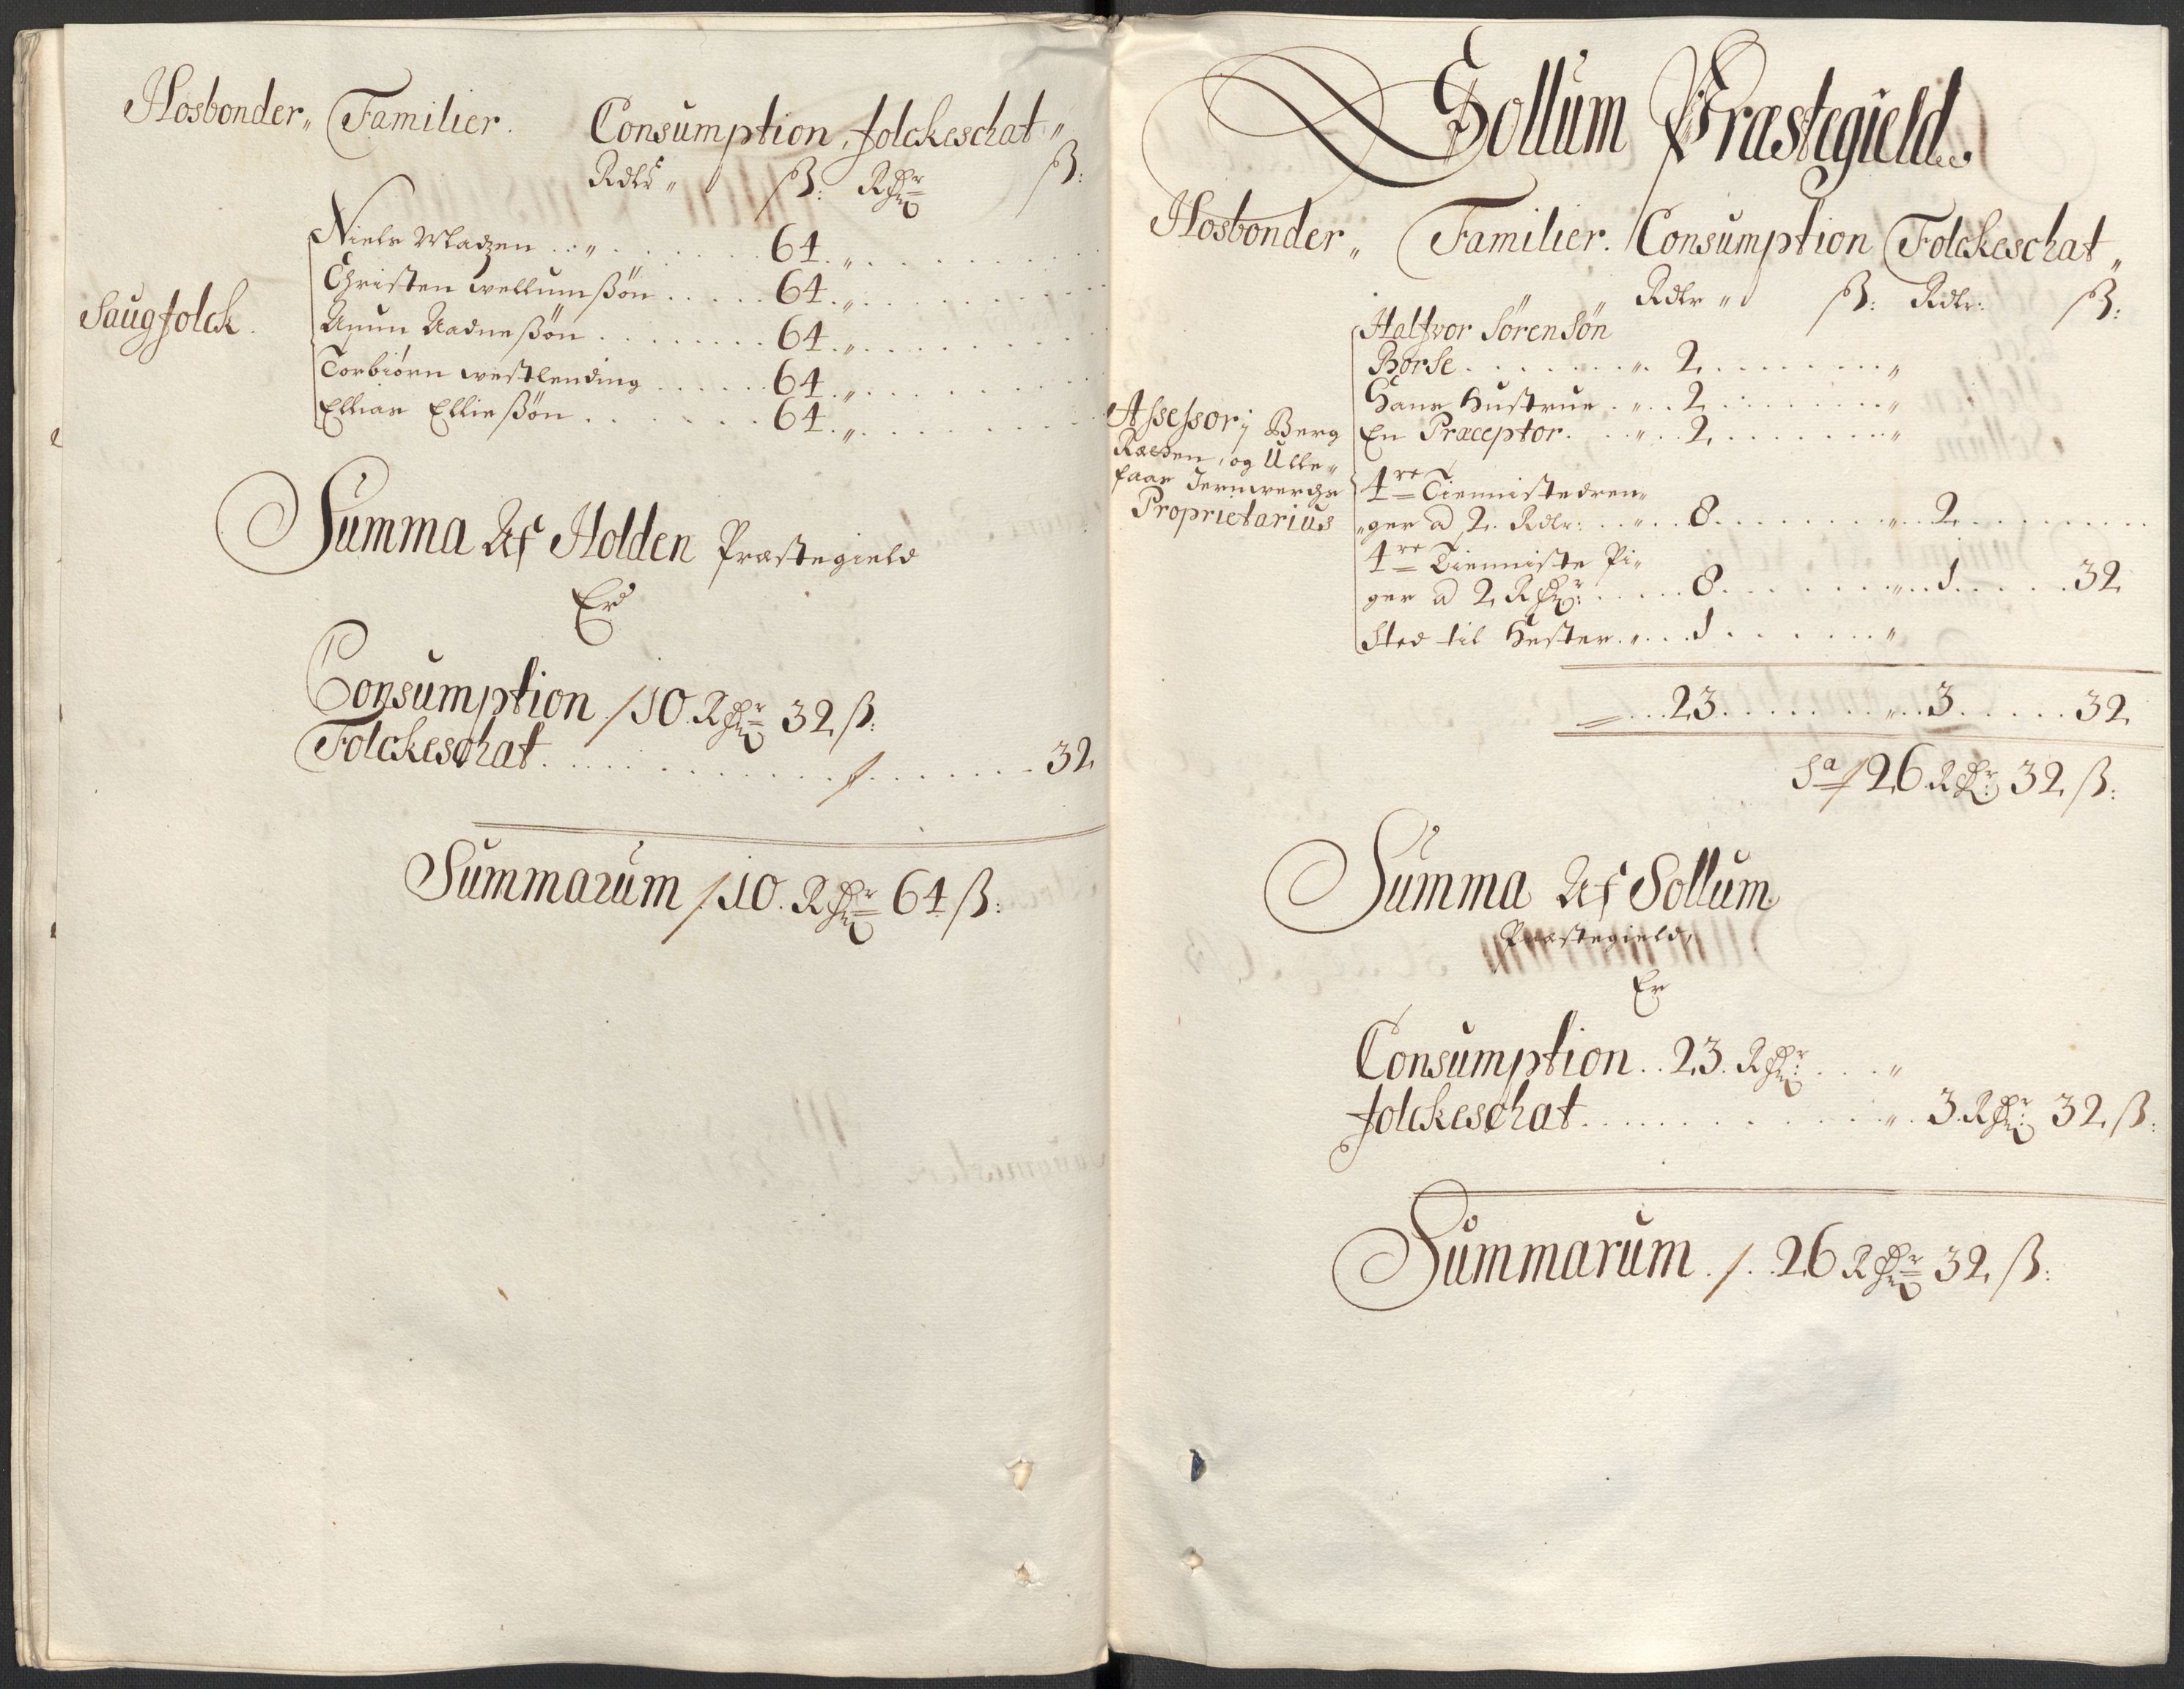 Hosbonder„ Familier. Consumption, Folckeschat„
Rdlr„ ß: Rdr ß:
Saugfolck.
Niels Madzen . . „ . . . . . . 64 . „ . . . . . . .
Christen Wellumßøn . . . . . 64 . „ . . . . . . .
Aadneßøn . . . . . . . . 64 . „ . . . . . . .
Torbiørn Westlending . . . . . . 64 . „ . . . . . . .
Ellias Elließøn . . . . . . . 64 . „ . . . . . . .
Summa Af Holden Præstegield
Er
Consumption / 10 Rdr 32 ß:
Folckeschat . . . . . . . . . . / . . . . . . . 32
Summarum / 10. Rdr 64 ß:
Sollum Præstegield.
Hosbonder„ Familier. Consumption Folckeschat„
Rdlr„ ß: Rdlr: ß:
Assessor; Berg
Raaden, og Ulle„
faas Jernwercks
Proprietarius
Halfvor Sørensøn
Borse . . . . . . „ . 2 . . . . . . . „
Hans Hustrue . „ . . 2 . . . . . . . „
En Præceptor . . . „ . . 2 . . . . . . . „
4re Tiennistedren„
„ger a 2. Rdlr: . . „ . . 8 . . . . . . . „ . . 2 . . . . . . .
4re Tienniste Pi„
ger a 2 Rdr: . . . . . 8 . . . . . . . „ . . 1 . . . . . 32
Sted til Hester . „ . . . 1 . . . . . . „
. . . 23 . . . . . . . „ . . 3 . . . . . 32
Sa / 26 Rdr 32 ß:
Summa Af Sollum
Præstegield,
Er
Consumption . . 23. Rdr: . . . „
Folckeschat . . . . . . . . . . „ . 3. Rdr: 32 ß:
Summarum . / . . 26 Rdr 32 ß: